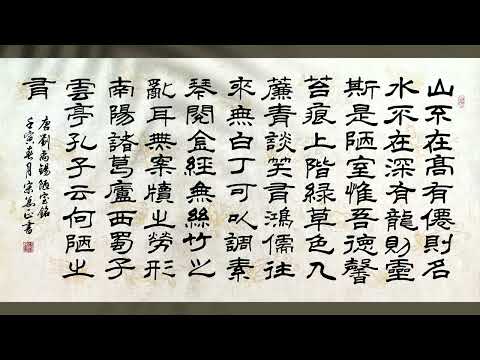 山不在高有僊則名
水不在深有龍則靈
斯是陋室惟吾德馨
苔痕上階綠草色入
簾青談笑有鴻儒往
來無白丁可以調素
琴閱金經無絲竹之
亂耳無案牘之勞形
南陽諸葛廬西蜀子
雲亭孔子云何陋之
有
唐劉禹錫陋室銘
壬寅月宋正書